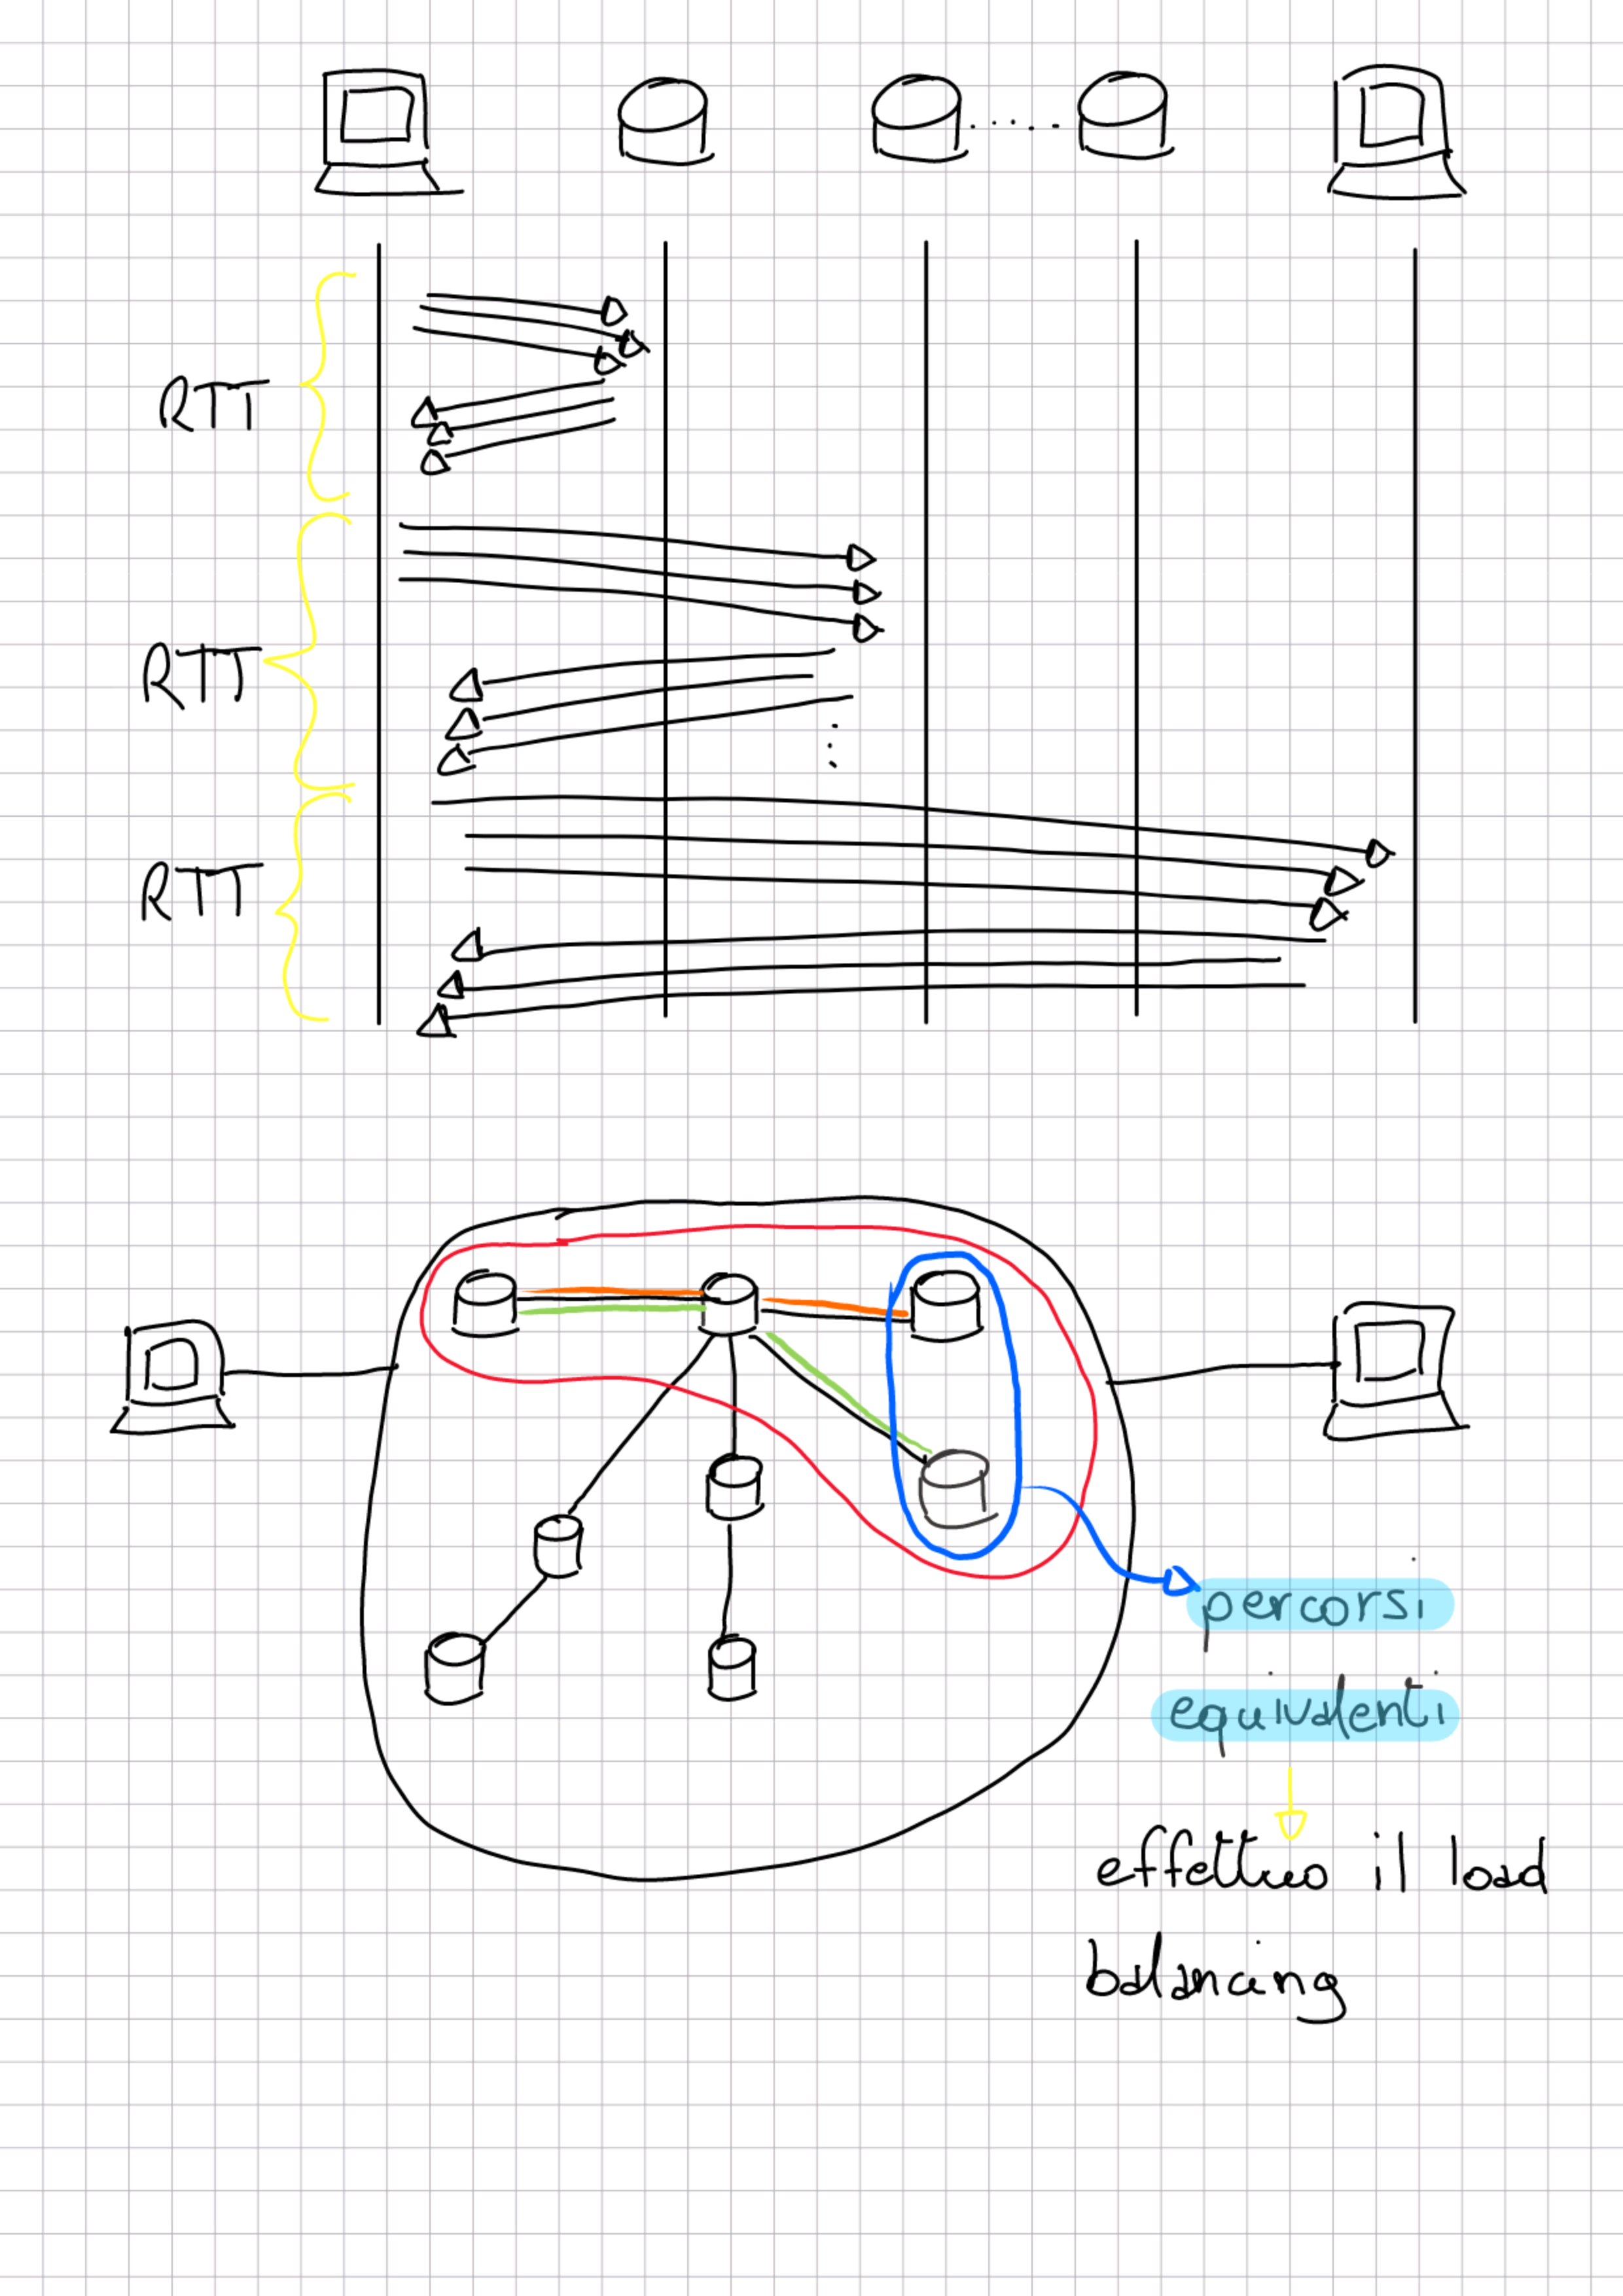 RTT
RTT
RTT
percorsi
equivalenti
effettuo il load
balancing